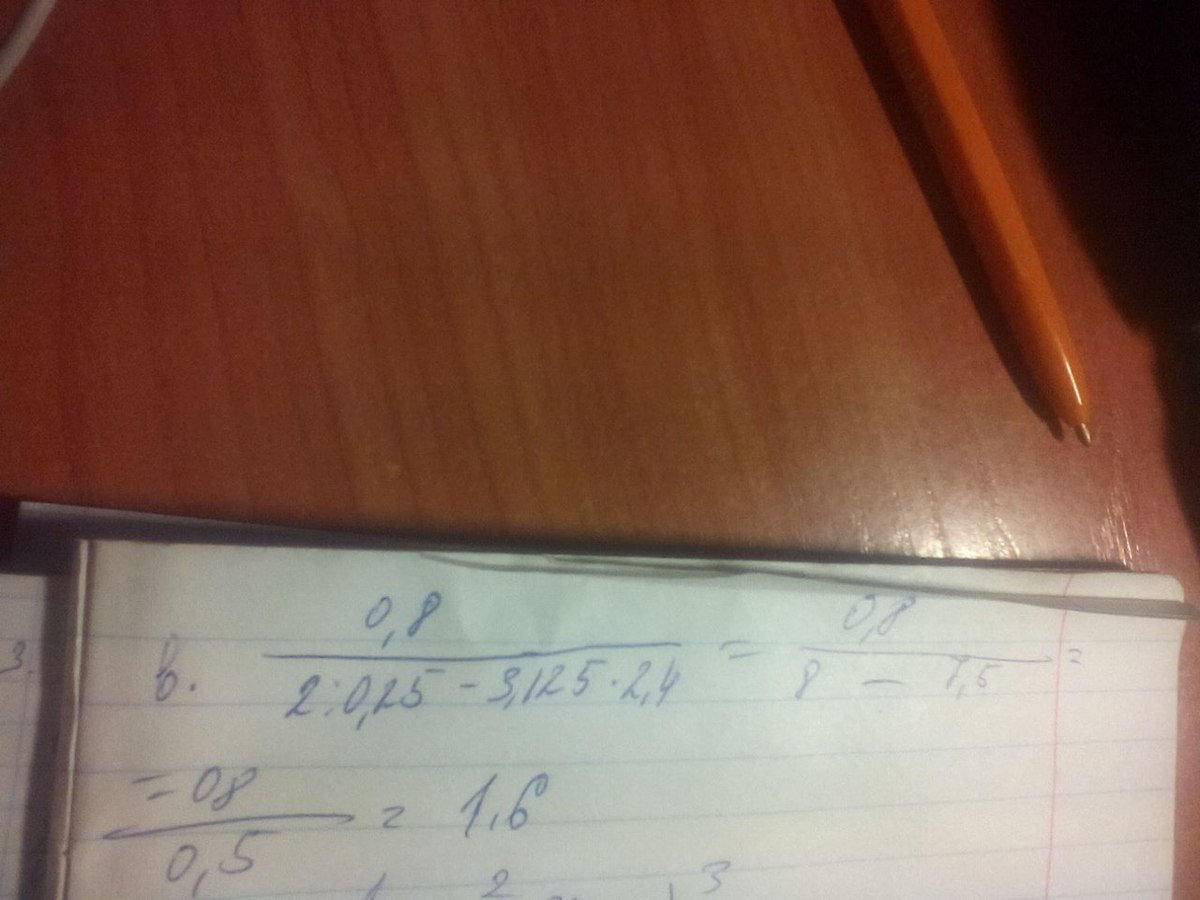 в. 0,8 / 2:0,25 - 3,125·2,4 = 0,8 / 8 - 7,5 =
= 08 / 0,5 = 1.6
3.